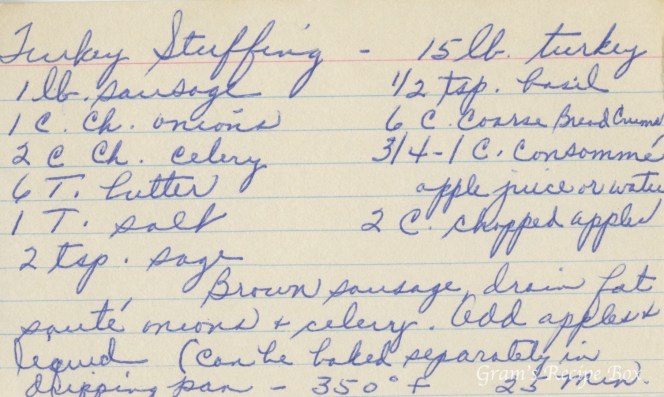 Turkey Stuffing - 15 lb. turkey
1 lb. sausage
1 C. Ch. onions
2 C Ch. celery
6 T. butter
1 T. salt
2 tsp. sage
1/2 tsp. basil
6 C. coarse Bread Crums
3/4-1 C. Consommé
apple juice or water
2 C. chopped apples
Brown sausage, drain fat
sauté onions + celery. Add apples +
liquid (Can be baked separately in
dripping pan - 350° F 25 min.
Gram's Recipe Box